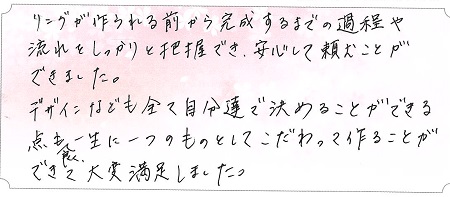 リングが作られる前から完成するまでの過程や
流れをしっかりと把握でき、安心して頼むことが
できました。
デザインなども全て自分達で決めることができる
点も一生に一つのものとしてこだわって作ることが
できて大変満足しました。